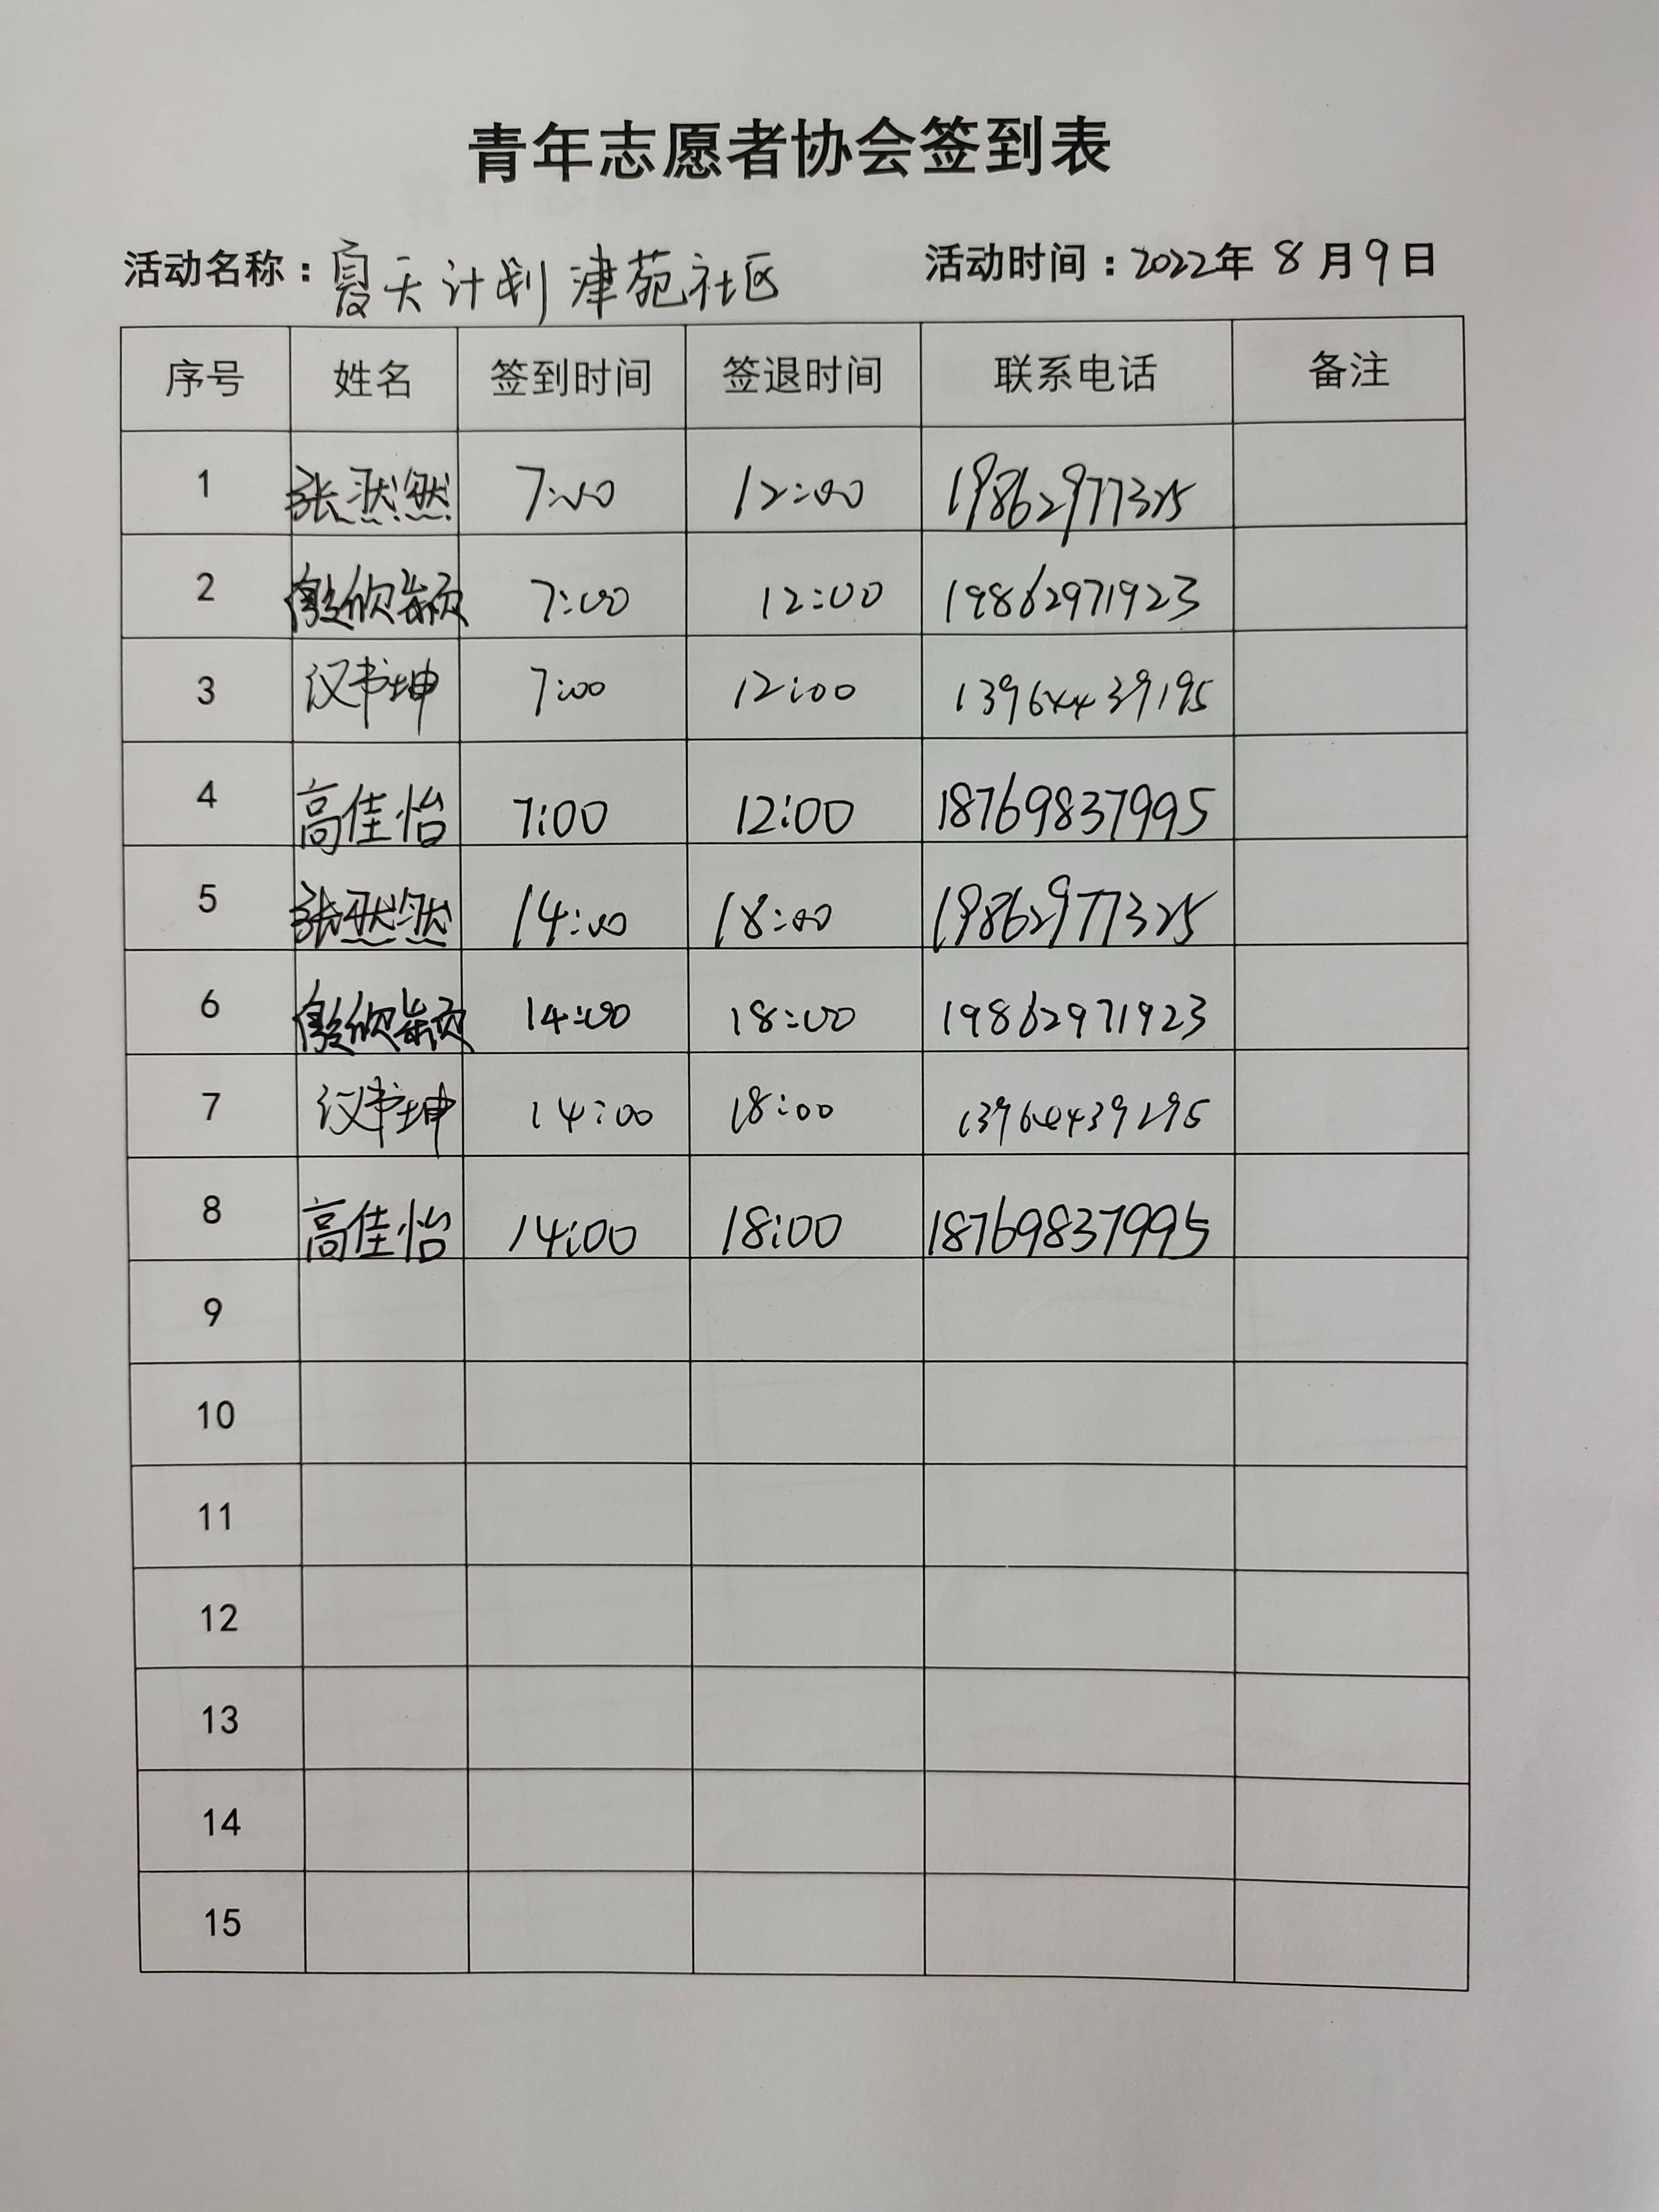 青年志愿者协会签到表
活动名称：夏天计划 津苑社区 活动时间：2022年 8 月 9 日
序号 姓名 签到时间 签退时间 联系电话 备注
1 张 然 7:00 12:00 19862977325
2 欣颖 7:00 12:00 19862971923
3 汉书坤 7:00 12:00 13964439195
4 高佳怡 7:00 12:00 18769837995
5 张 然 14:00 18:00 19862977325
6 欣颖 14:00 18:00 19862971923
7 汉书坤 14:00 18:00
8 高佳怡 14:00 18:00 18769837995
9
10
11
12
13
14
15